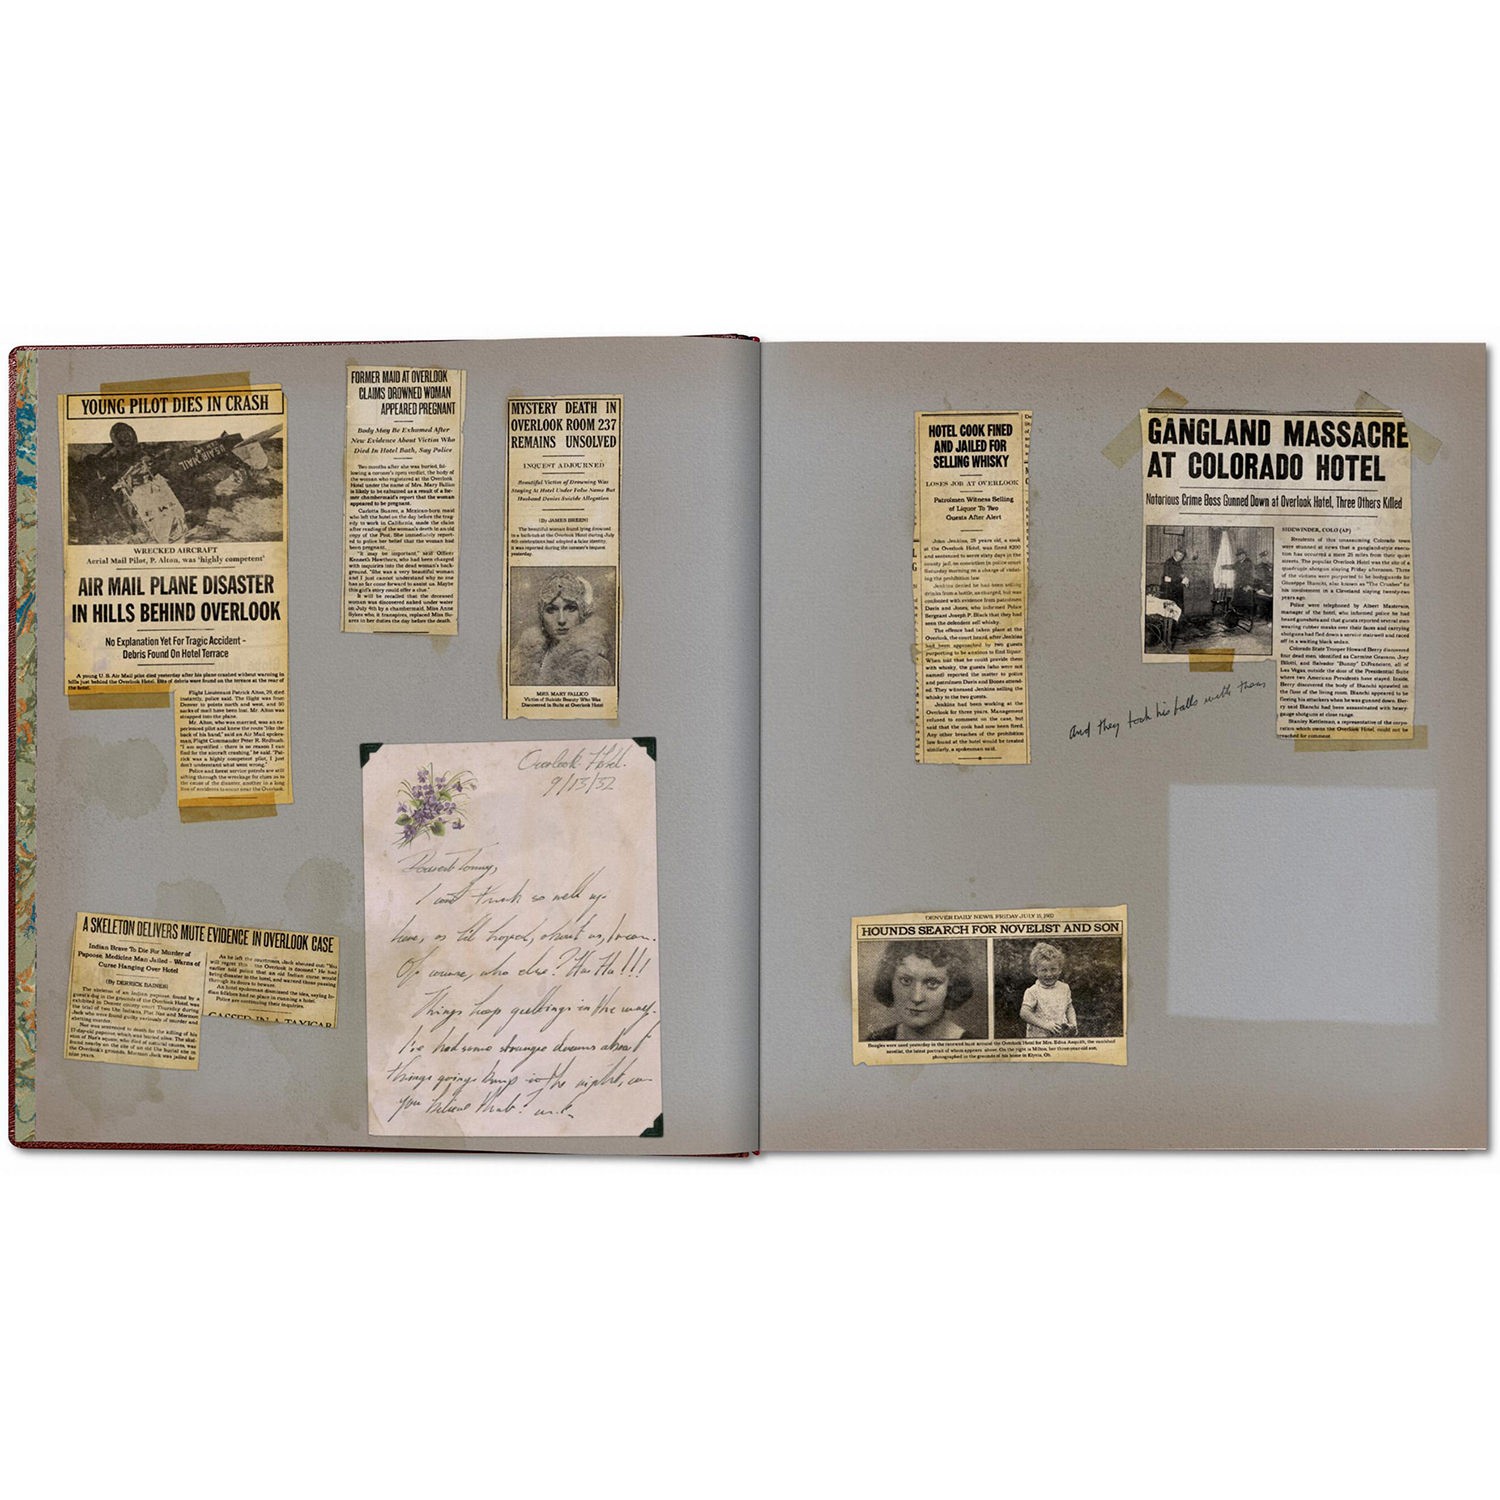 YOUNG PILOT DIES IN CRASH
WRECKED AIRCRAFT
Aerial Mail Pilot, P. Alton, was 'highly competent'
AIR MAIL PLANE DISASTER
IN HILLS BEHIND OVERLOOK
No Explanation Yet For Tragic Accident -
Debris Found On Hotel Terrace
A young U.S. Air Mail pilot died yesterday after his plane crashed without warning in
hills just behind the Overlook Hotel. Bits of debris were found on the terrace at the rear of
the hotel.
Flight Lieutenant Patrick Alton, 29, died
instantly, police said. The flight was from
Denver to points north and west, and
sacks of mail have been lost. Mr. Alton was
strapped into the plane.
Mr. Alton, who was married, was an ex-
perienced pilot and knew the route "like the
back of his hand," said an Air Mail spokes-
man, Flight Commander Peter R.
"I am mystified - there is no reason I can
find for the aircraft crashing," he said. "Pat-
rick was a highly competent pilot, I just
don't understand what went wrong."
Police and forest service patrols are still
sifting through the wreckage for clues as to
the cause of the disaster, another in a long
line of accidents to occur near the Overlook.
FORMER MAID AT OVERLOOK
CLAIMS DROWNED WOMAN
APPEARED PREGNANT
Body May Be Exhumed After
New Evidence About Victim Who
Died In Hotel Bath, Say Police
Two months after she was buried, fol-
lowing a coroner's open verdict, the body of
the woman who registered at the Overlook
Hotel under the name of Mrs. Mary Fallico
is likely to be exhumed as a result of a for-
mer chambermaid's report that the woman
appeared to be pregnant.
Carlotta Suarez, a Mexican-born maid
who left the hotel on the day before the trag-
edy to work in California, made the claim
after reading of the woman's death in an old
copy of the Post. She immediately report-
ed to police her belief that the woman had
been pregnant.
"It may be important," said Officer
Kenneth Hawthorn, who had been charged
with inquiries into the dead woman's back-
ground. "She was a very beautiful woman
and I just cannot understand why no one
has so far come forward to assist us. Maybe
this girl's story could offer a clue."
It will be recalled that the deceased
woman was discovered naked under water
on July 4th by a chambermaid, Miss Anne
Sykes who, it transpires, replaced Miss Su-
arez in her duties the day before the death.
MYSTERY DEATH IN
OVERLOOK ROOM 237
REMAINS UNSOLVED
INQUEST ADJOURNED
Beautiful Victim of Drowning Was
Staying At Hotel Under False Name But
Husband Denies Suicide Allegation
(By JAMES BREEN)
The beautiful woman found lying drowned
in a bath-tub at the Overlook Hotel during July
4th celebrations had adopted a false identity,
it was reported during the coroner's inquest
yesterday.
MRS. MARY FALLICO
Victim of Suicide Beauty Who Was
Discovered in Suite at Overlook Hotel
Overlook Hotel.
9/13/32
Dearest Tommy,
I can't think so well up
here, as I'd hoped, about us, I mean.
Of course, who else? Ha Ha!!!
Things keep getting in the way.
I've had some strange dreams about
things going bump in the night, can
you believe that?
A SKELETON DELIVERS MUTE EVIDENCE IN OVERLOOK CASE
Indian Brave To Die For Murder of
Papoose. Medicine Man Jailed - Warns of
Curse Hanging Over Hotel
(By DERRICK BAINES)
The skeleton of an Indian papoose, found by a
guest's dog in the grounds of the Overlook Hotel was
exhibited in Denver county court Thursday during
the trial of two Ute Indians, Flat Nat and Mormon
Jack who were found guilty variously of murder and
abetting murder.
Nat was sentenced to death for the killing of his
17-day-old papoose, which was buried alive. The skel-
eton of Nat's squaw, who died of natural causes, was
found nearby on the site of an old Ute burial site in
the Overlook's grounds. Mormon Jack was jailed for
nine years.
As he left the courtroom, Jack shouted out: "You
will regret this - the Overlook is doomed." He had
earlier told police that an old Indian curse would
bring disaster to the hotel, and warned those passing
through its doors to beware.
An hotel spokesman dismissed the idea, saying In-
dian folklore had no place in running a hotel.
Police are continuing their inquiries.
GASSED IN A TAXICAB
HOTEL COOK FINED
AND JAILED FOR
SELLING WHISKY
LOSES JOB AT OVERLOOK
Patrolmen Witness Selling
of Liquor To Two
Guests After Alert
John Jenkins, 28 years old, a cook
at the Overlook Hotel, was fined $200
and sentenced to serve sixty days in the
county jail, on conviction in police court
Saturday morning on a charge of violat-
ing the prohibition law.
Jenkins denied he had been selling
drinks from a bottle, as charged, but was
confronted with evidence from patrolmen
Davis and Jones, who informed Police
Sergeant Joseph P. Black that they had
seen the defendant sell whisky.
The offence had taken place at the
Overlook, the court heard, after Jenkins
had been approached by two guests
purporting to be anxious to find liquor.
When told that he could provide them
with whisky, the guests (who were not
named) reported the matter to police
and patrolmen Davis and Bones attend-
ed. They witnessed Jenkins selling the
whisky to the two guests.
Jenkins had been working at the
Overlook for three years. Management
refused to comment on the case, but
said that the cook had now been fired.
Any other breaches of the prohibition
law found at the hotel would be treated
similarly, a spokesman said.
GANGLAND MASSACRE
AT COLORADO HOTEL
Notorious Crime Boss Gunned Down at Overlook Hotel, Three Others Killed
SIDEWINDER, COLO (AP)
Residents of this unassuming Colorado town
were stunned at news that a gangland-style execu-
tion has occurred a mere 25 miles from their quiet
streets. The popular Overlook Hotel was the site of a
quadruple shotgun slaying Friday afternoon. Three
of the victims were purported to be bodyguards for
Giuseppe Bianchi, also known as "The Crusher" for
his involvement in a Cleveland slaying twenty-two
years ago.
Police were telephoned by Albert Masterson,
manager of the hotel, who informed police he had
heard gunshots and that guests reported several men
wearing rubber masks over their faces and carrying
shotguns had fled down a service stairwell and raced
off in a waiting black sedan.
Colorado State Trooper Howard Berry discovered
four dead men, identified as Carmine Grasson, Joey
Bilotti, and Salvador "Bunny" DiFrancisco, all of
Las Vegas, outside the door of the Presidential Suite
where two American Presidents have stayed. Inside,
Berry discovered the body of Bianchi sprawled on
the floor of the living room. Bianchi appeared to be
fleeing his attackers when he was gunned down. Ber-
ry said Bianchi had been assassinated with heavy-
gauge shotguns at close range.
Stanley Kettleman, a representative of the corpo-
ration which owns the Overlook Hotel, could not be
reached for comment.
and they took his balls with them
DENVER DAILY NEWS, FRIDAY JULY 15,
HOUNDS SEARCH FOR NOVELIST AND SON
Beagles were used yesterday in the renewed hunt around the Overlook Hotel for Mrs. Edna Asquith, the vanished
novelist, the latest portrait of whom appears above. On the right is Milton, her three-year-old son,
photographed in the grounds of his home in Elyria, Oh.